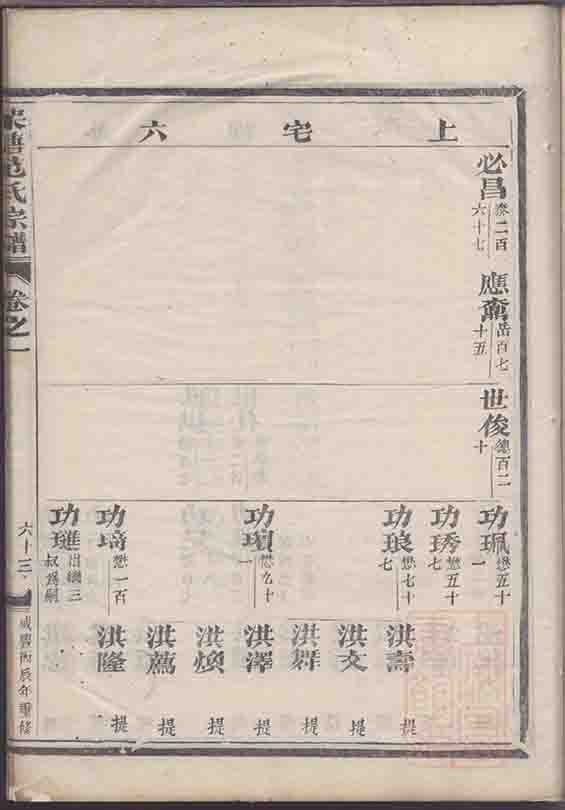 上宅六
必昌 泰二百六十七
應奮 岳百七十五
世俊 德百二十
功珮 懋五十一
功琇 懋五十七
功琅 懋七十七
功瓊 懋九十一
功琦 懋一百
功璡 出繼三叔為嗣
洪壽 提
洪文 提
洪舞 提
洪澤 提
洪煥 提
洪薦 提
洪隆 提
范氏宗譜
卷之一
六十三
咸豐丙辰年重修